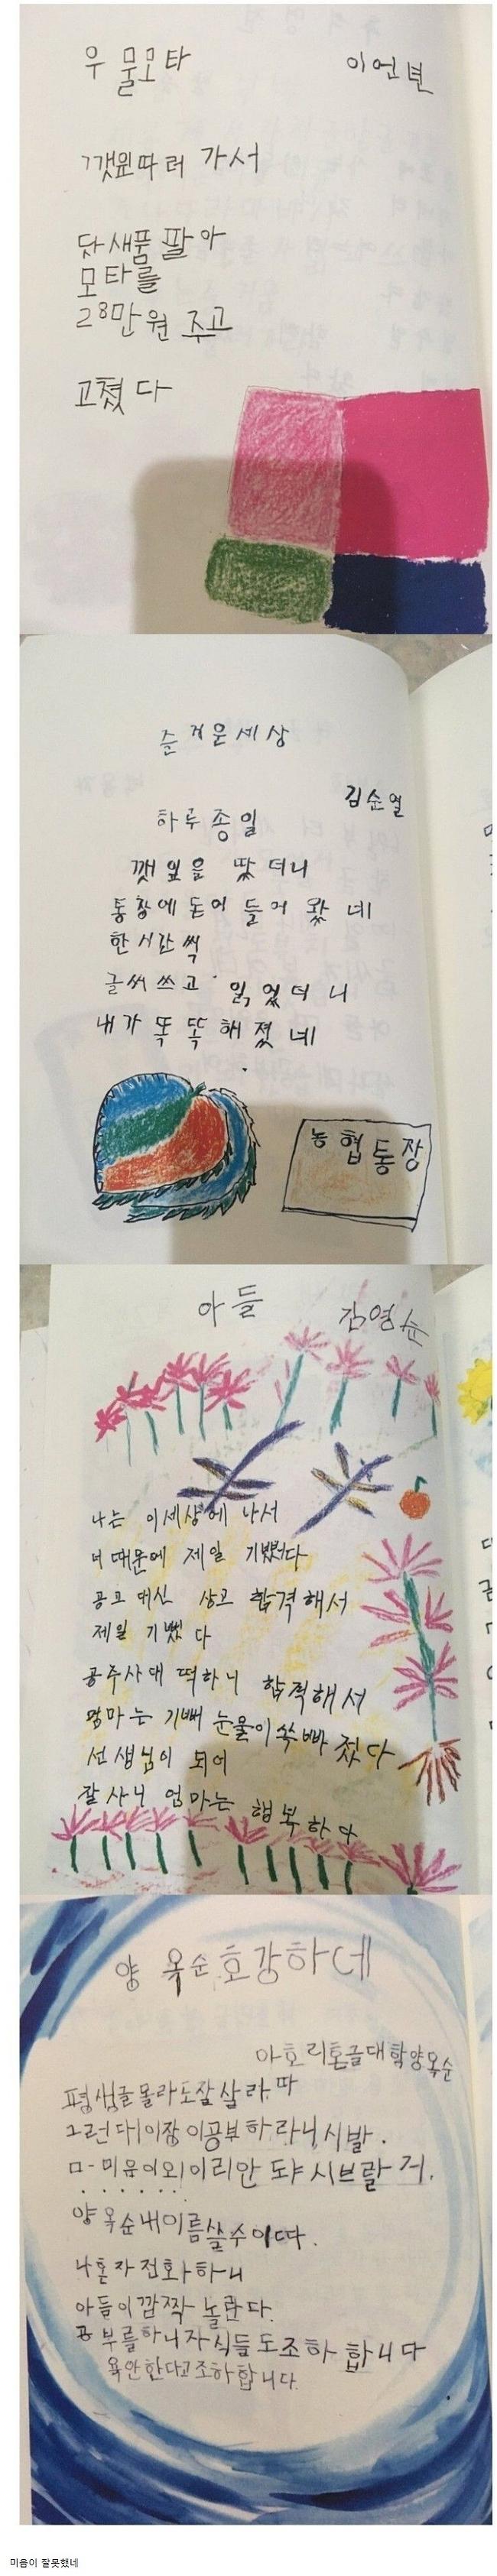 우 물모타
이언년
깻잎따러 가서
닷새품 팔아
모타를
28만원 주고
고쳤다
즐거운세상
김순열
하루종일
깻잎을 땄더니
통장에 돈이 들어 왔네
한시간씩
글씨쓰고 읽었더니
내가 똑똑해졌네
농협통장
아들
김영순
나는 이세상에 나서
너때문에 제일 기뻤다
공고 대신 상고 합격해서
제일 기뻤다
공주사대 떡하니 합격해서
엄마는 기뻐 눈물이쏙빠젔다
선생님이 되어
잘사니 엄마는 행복하다
양 옥순호강하네
아호리혼글대학양옥순
평생글몰라도잘살라따
그런대이장이공부하라니시발.
ㅁ-미음이외이리안 도냐시브랄거.
양옥순내이름쓸수이따.
나혼자전화하니
아들이깜짝놀란다.
공부를하니자식들도조하합니다
욕안한다고조하합니다.
미음이 잘못했네